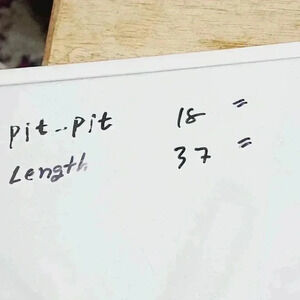 Pit--Pit 18 "
Length 37 "